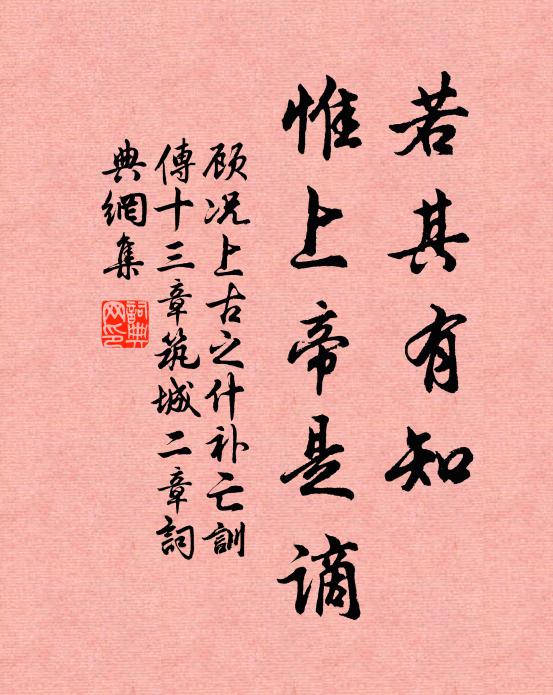 若其有知
惟上帝是谪
顾况上古之什补亡訓
傳十三章筑城二章詞
典網集
詞典
网印